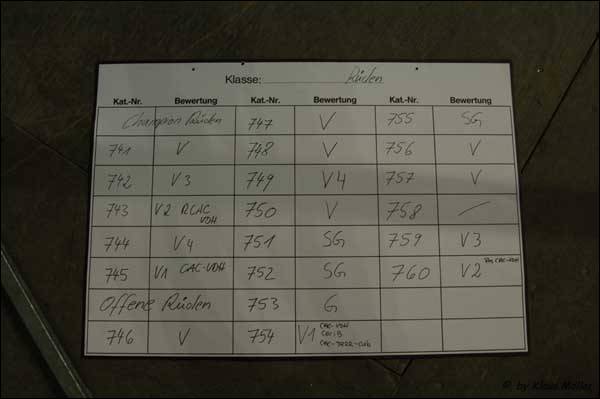 Klasse: Rüden
Kat.-Nr. Bewertung Kat.-Nr. Bewertung Kat.-Nr. Bewertung
Champion Rüden 747 V 755 SG
741 V 748 V 756 V
742 V3 749 V4 757 V
743 V2 R.CAC VDH 750 V 758 —
744 V4 751 SG 759 V3
745 V1 CAC-VDH 752 SG 760 V2 CAC-VDH
Offene Rüden 753 G
746 V 754 V1 CAC-VDH
CACIB
© by Klaus Möller